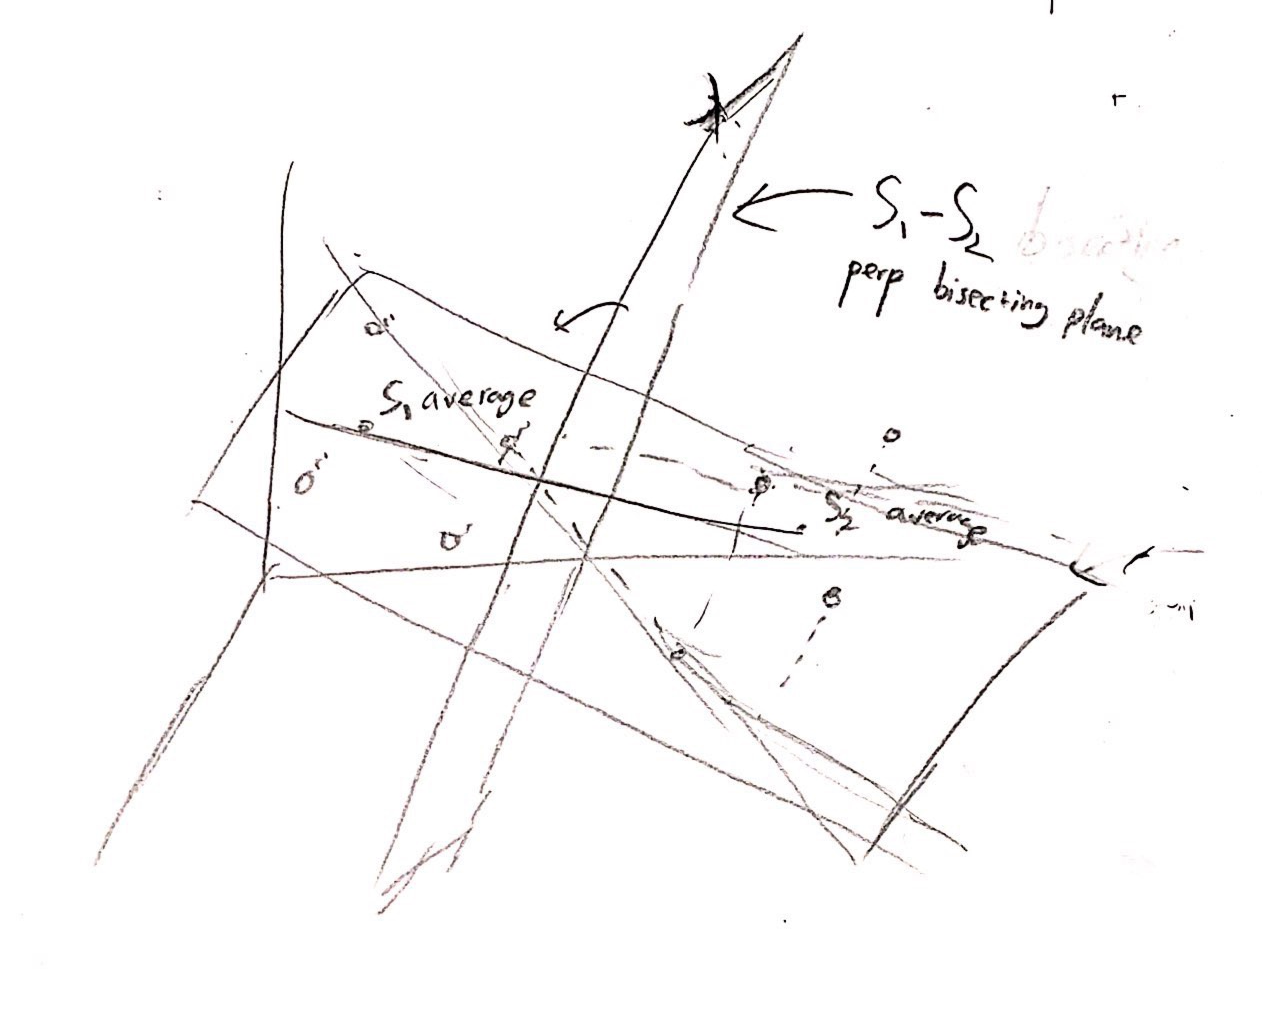 S₁ - S₂
perp bisecting plane
S₁ average
S₂ average